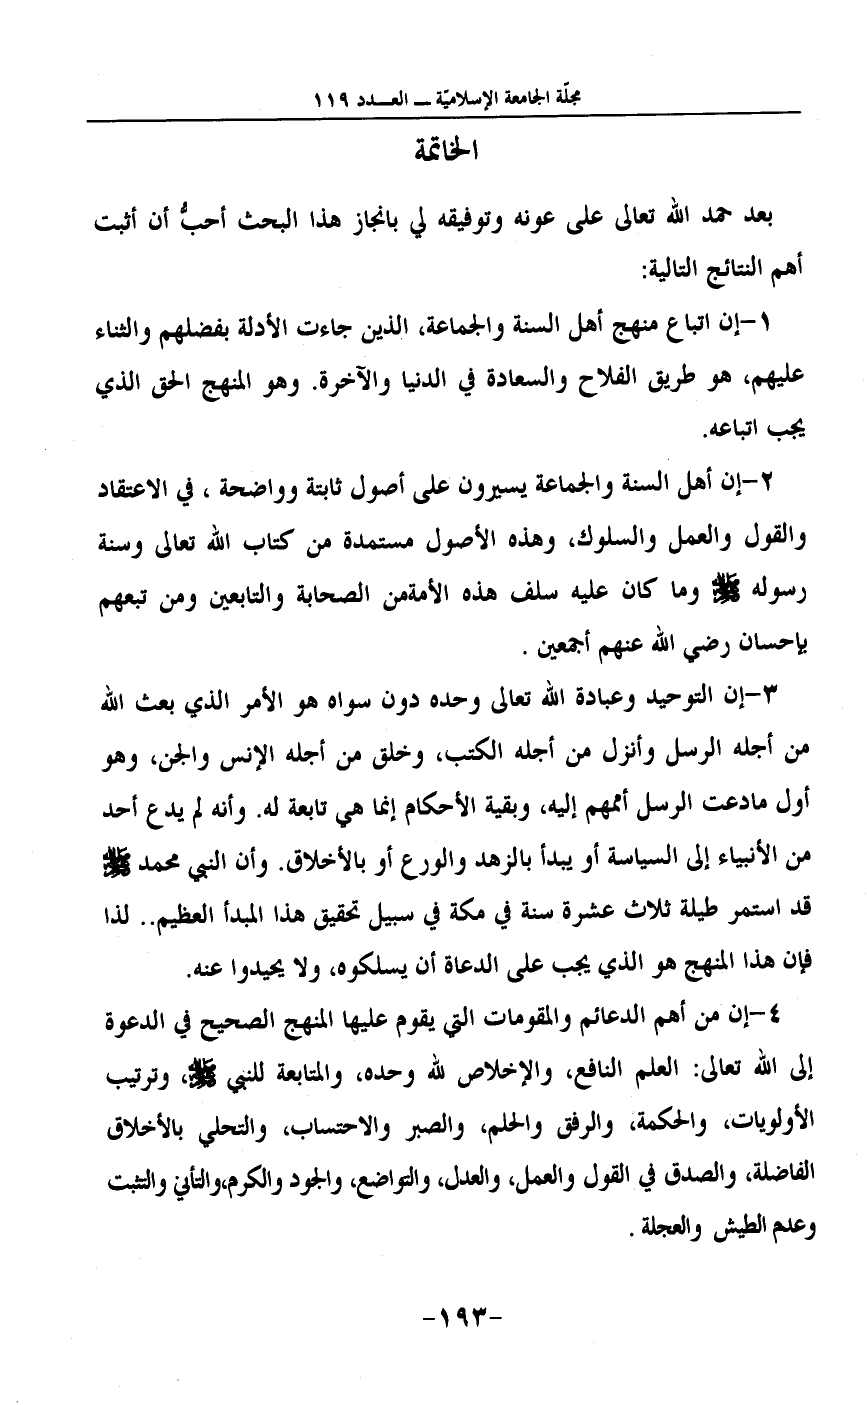 مجلّة الجامعة الإسلاميّة ــ العــدد ١١٩
الخاتمة
بعد حمد الله تعالى على عونه وتوفيقه لي بانجاز هذا البحث أحبُّ أن أثبت
أهم النتائج التالية:
١-إن اتباع منهج أهل السنة والجماعة، الذين جاءت الأدلة بفضلهم والثناء
عليهم، هو طريق الفلاح والسعادة في الدنيا والآخرة. وهو المنهج الحق الذي
يجب اتباعه.
٢-إن أهل السنة والجماعة يسيرون على أصول ثابتة وواضحة ، في الاعتقاد
والقول والعمل والسلوك، وهذه الأصول مستمدة من كتاب الله تعالى وسنة
رسوله ﷺ وما كان عليه سلف هذه الأمةمن الصحابة والتابعين ومن تبعهم
بإحسان رضي الله عنهم أجمعين .
٣-إن التوحيد وعبادة الله تعالى وحده دون سواه هو الأمر الذي بعث الله
من أجله الرسل وأنزل من أجله الكتب، وخلق من أجله الإنس والجن، وهو
أول مادعت الرسل أممهم إليه، وبقية الأحكام إنما هي تابعة له. وأنه لم يدع أحد
من الأنبياء إلى السياسة أو يبدأ بالزهد والورع أو بالأخلاق. وأن النبي محمد ﷺ
قد استمر طيلة ثلاث عشرة سنة في مكة في سبيل تحقيق هذا المبدأ العظيم.. لذا
فإن هذا المنهج هو الذي يجب على الدعاة أن يسلكوه، ولا يحيدوا عنه.
٤-إن من أهم الدعائم والمقومات التي يقوم عليها المنهج الصحيح في الدعوة
إلى الله تعالى: العلم النافع، والإخلاص لله وحده، والمتابعة للنبي ﷺ، وترتيب
الأولويات، والحكمة، والرفق والحلم، والصبر والاحتساب، والتحلي بالأخلاق
الفاضلة، والصدق في القول والعمل، والعدل، والتواضع، والجود والكرم،والتأني والتثبت
وعدم الطيش والعجلة .
-١٩٣-